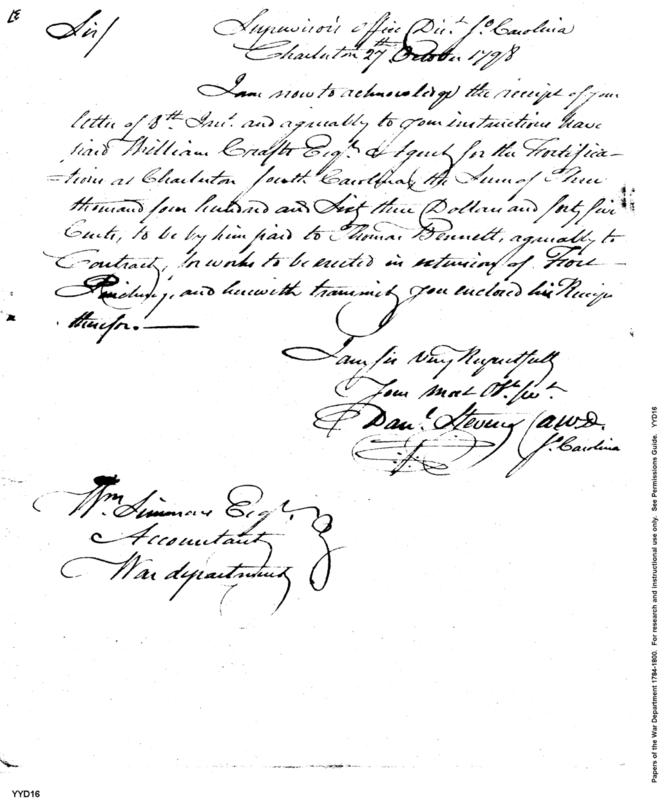 Supervisor's office Dist. So. Carolina
Sir/ Charleston 27th October 1798
I am now to acknowledge the receipt of your
letter of 8th Inst. and agreeably to your instructions have
paid William Crafts Esqr. Agent for the Fortifica-
tions at Charleston South Carolina, the Sum of Three
thousand four hundred and Sixty three Dollars and forty five
Cents, to be by him paid to Thomas Bennett, agreeably to
Contract, for works to be erected in extension of Fort
Pinckney, and herewith transmit you enclosed his Receipt
therefor.
I am Sir Very Respectfully
Your most Obt. Sert.
Danl. Stevens
So. Carolina
Wm. Simmons Esqr.
Accountant
War department
YYD16
Papers of the War Department 1784-1800. For research and instructional use only. See Permissions Guide. YYD16